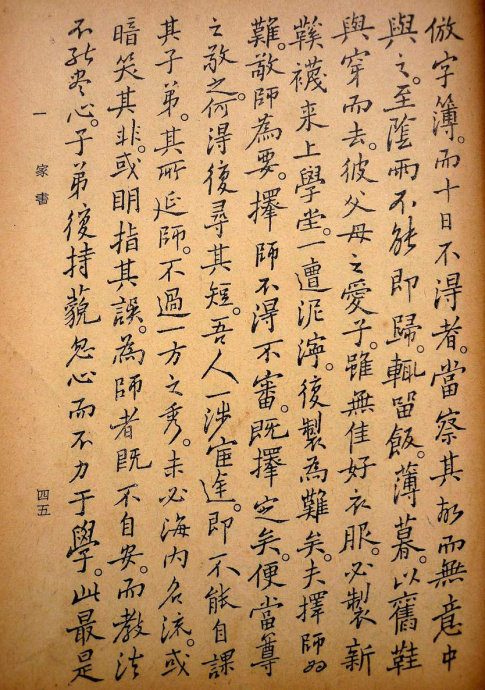 倣字簿。而十日不得者。當察其故而無意中
與之。至陰雨不能即歸。輒留飯。薄暮。以舊鞋
與穿而去。彼父母之愛子。雖無佳好衣服。必製新
鞵襪来上學堂。一遭泥濘。復製為難矣。夫擇師為
難。敬師為要。擇師不得不審。既擇定矣。便當尊
之敬之。何得復尋其短。吾人一涉宦途。即不能自課
其子弟。其所延師。不過一方之秀。未必海內名流。或
暗笑其非。或明指其誤。為師者既不自安。而教法
不能盡心。子弟復持藐忽心而不力于學。此最是
一 家書
四五